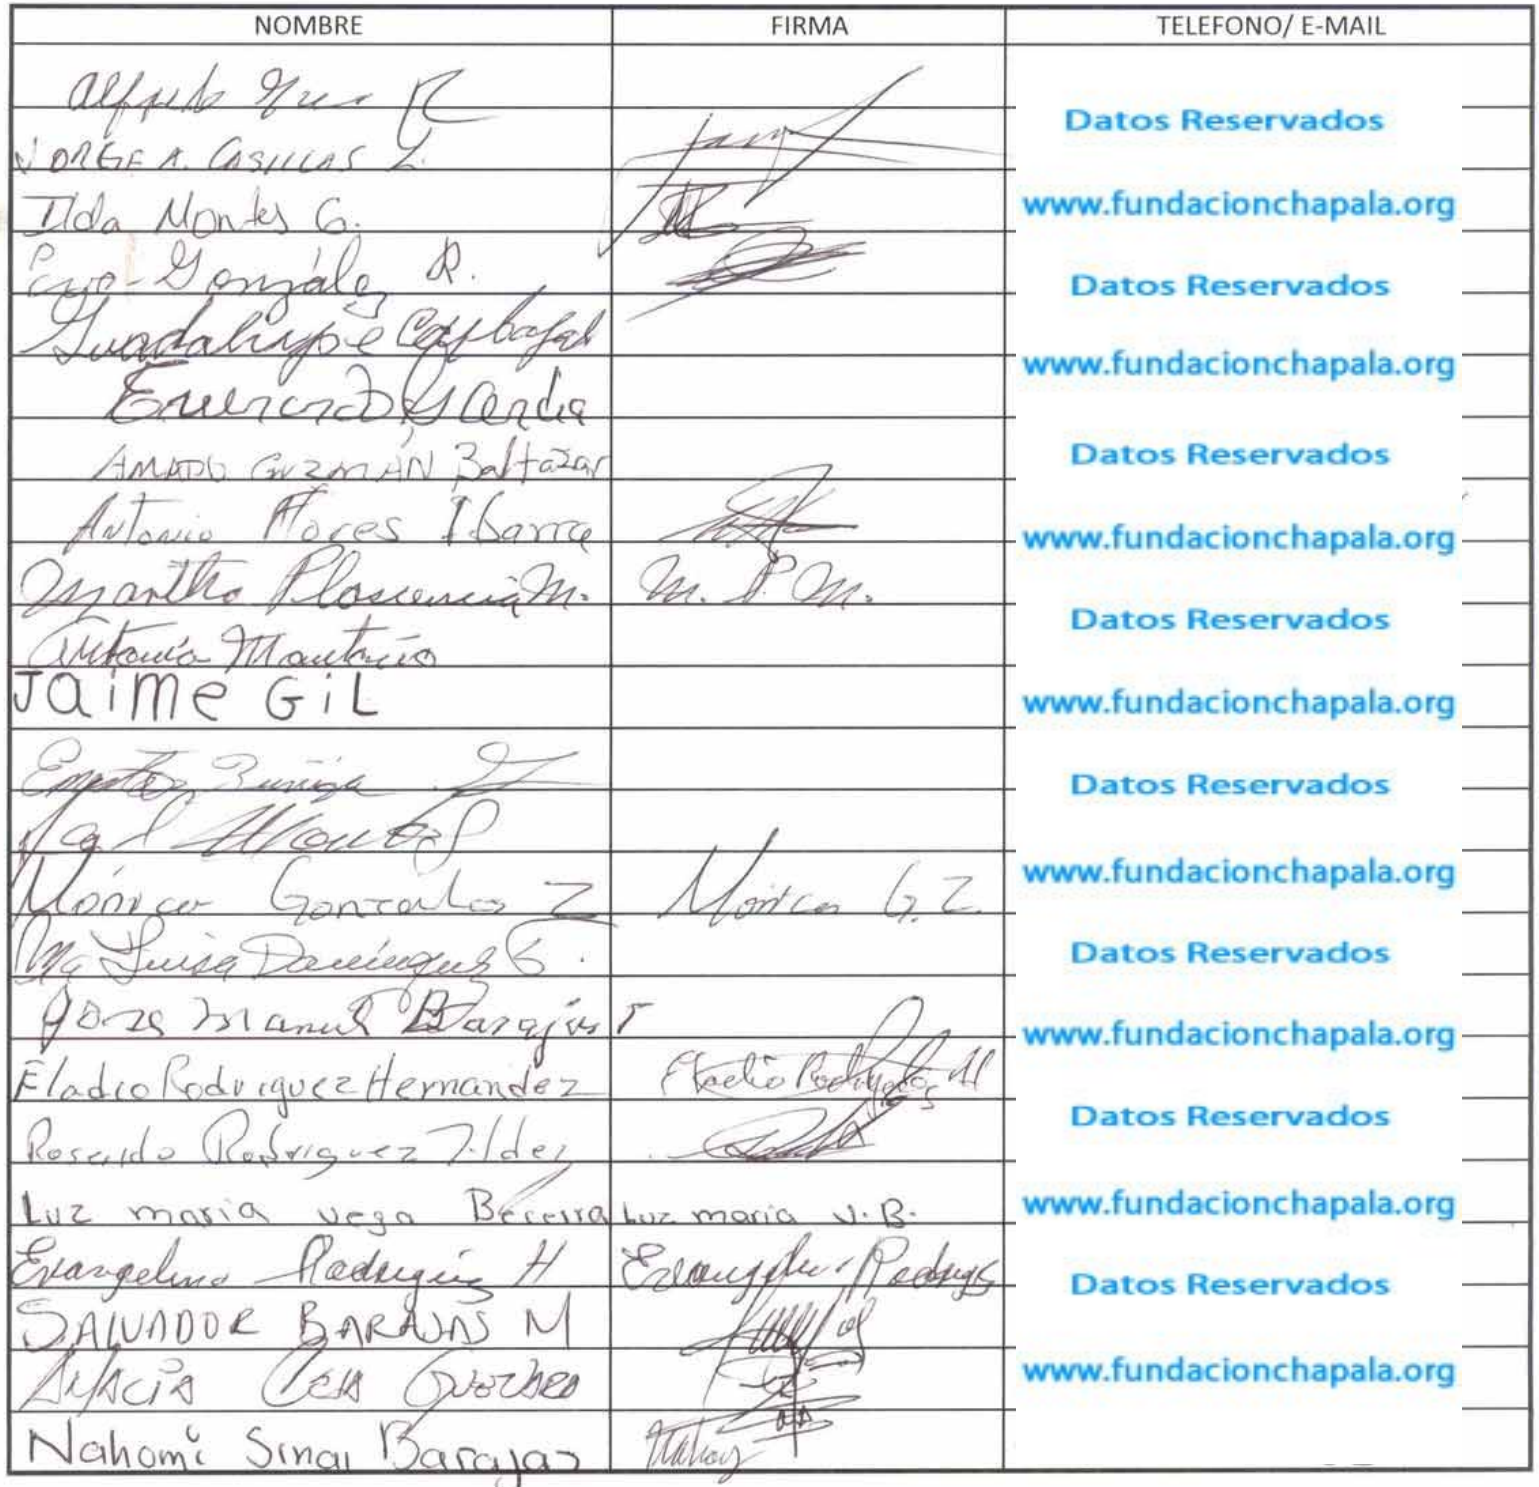 NOMBRE FIRMA TELEFONO/ E-MAIL
Alfredo R
Datos Reservados
JORGE A. CASILLAS L.
Ilda Montes G. www.fundacionchapala.org
González R. Datos Reservados
Guadalupe Carbajal
www.fundacionchapala.org
AMADO GUZMÁN Baltazar Datos Reservados
Antonio Flores Ibarra www.fundacionchapala.org
Martha Plascencia M. M. P. M.
Datos Reservados
Antonia
Jaime GiL www.fundacionchapala.org
Zuñiga Datos Reservados
Mónica Gonzalez Z Monica G. Z. www.fundacionchapala.org
Ma Luisa Dominguez G. Datos Reservados
Jose Manuel Barajas T www.fundacionchapala.org
Eladio Rodriguez Hernandez Eladio Rodriguez H
Datos Reservados
Rosendo Rodriguez
Luz maria vega Becerra Luz maria V.B. www.fundacionchapala.org
Evangelina Rodriguez H Evangelina Rodrigz Datos Reservados
SALVADOR BARAJAS M
www.fundacionchapala.org
Nahomi Sinai Barajas